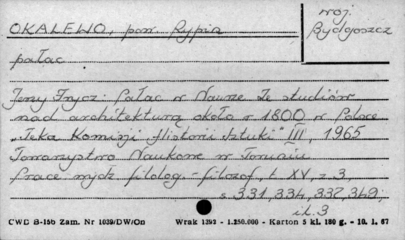 OKALEWO, pow. Rypin
woj.
Bydgoszcz
pałac
Jerzy Frycz: Pałac w Nawrze Ze studiów
nad architekturą około r 1800 w Polsce
„Teka Komisji Historii Sztuki" III, 1965
Towarzystwo Naukowe w Toruniu
Prace wydz. filolog.-filozof, t. XV, z. 3,
s. 331, 334, 337, 349;
il. 3
CWD B-15b Zam. Nr 1039/DW/On Wrak 1392 - 1.250.000 - Karton 5 kl. 180 g. - 10. 1. 67